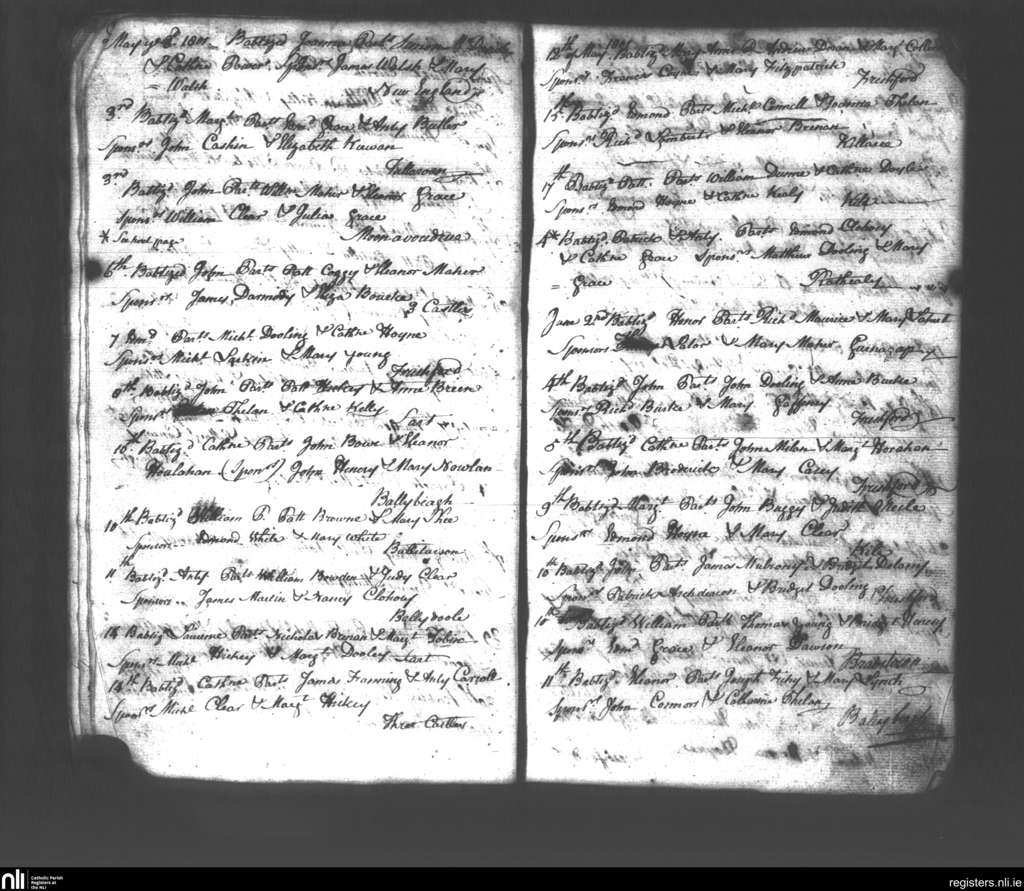 May ye 2d. 1801. Baptizd Joanna Parts
& Cathne Power. Sponrs. James Walsh & Mary
= Walsh New England
3rd Baptizd Margt Parts Edmd Grace & Anty Butler
Sponsrs John Cashin & Elizabeth Kirwan
Tullaroan
3rd
Baptizd John Parts Willm Maher & Eleanr Grace
Sponsrs William Clear & Julia Grace
* See next page Monavoudrea
6th. Baptized John Parts Patt Coggy & Eleanor Maher
Sponsrs. James Darmody & Eliza Bourke
3 Castles
7 Edmd Parts Michl. Dooling & Cathne Hoyne
Sponsrs Michl & Mary Young
Freshford
8th. Baptizd John Parts Patt Hickey & Anne Breen
Sponsrs Phelan & Cathne Kelly
Lart
10th. Baptizd Cathne Parts John Bowe & Eleanor
Houlahan (Sponsrs) John Henery & Mary Nowlan
Ballybeagh
10th Baptizd William P. Patt Browne & Mary Shee
Sponsors Edmond White & Mary White
11th Baptizd Anty Parts William Bowden & Judy Clear
Sponsors.. James Martin & Nancy Clohosy
Ballydoole
14 Baptizd Laurence Parts Nicholas Brenan & Margt Tobin
Sponsrs Michl Hickey & Margt Dooley Lart
14th Baptizd Cathne Parts James Fanning & Anty Carroll
Sponsrs Michl Clear & Margt Hickey
Three Castles.
12th May Baptizd Mary Anne P. Andrew Doran & Mary
Sponsrs Francis Coyne & Mary Fitzpatrick Freshford
15th Baptizd Edmond Parts Michl. Connell & Joanna Phelan
Sponsrs Richd & Eleanor Brenan
Killaree
17th Baptizd Patt. Parts William Dunne & Cathne Doyle
Sponsrs Edmond Hoyne & Cathne Kealy Kile
4th Baptizd Patrick & Anty. Parts Edmond Clohosy
& Cathne Grace Sponsrs Matthew Dooling & Mary
= Grace Rathealy
June 2nd Baptizd Honor Parts Richd Maurice & Mary
Sponsors Peter & Mary Maher
4th Baptizd John Parts John Dooling & Anne Burke
Sponsrs Richd Burke & Mary Gaffney
Freshford
5th Baptizd Cathne Parts John Milan & Margt Horahan
Sponsrs John Broderick & Mary Casey
Freshford
9th Baptizd Margt. Parts John Buggy & Judith Steele
Sponsrs Edmond Hoyne & Mary Clear
Kile
10th Baptizd John Parts James Mulrony & Bridgt Delany
Sponsrs Patrick Archdeacon & Bridget Dooling Freshford
10th Baptizd William Parts Thomas Young & Bridgt
Sponsrs Edmd Grace & Eleanor Dawson
11th Baptizd Eleanor Parts Joseph Fahy & Mary Lynch
Sponsrs John Connors & Catherine Phelan
Ballybeagh
nli Catholic Parish
Registers at
the NLI
registers.nli.ie